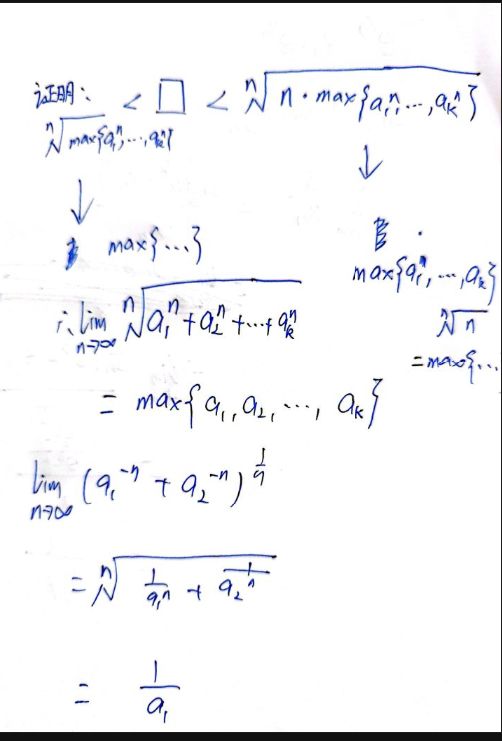 证明: ⁿ√max{a₁ⁿ,…,aₖⁿ} < □ < ⁿ√(n·max{a₁ⁿ,…,aₖⁿ})
↓ ↓
max{…}
max{a₁ⁿ,…,aₖ} ⁿ√n
= max{…
∴ lim n→∞ ⁿ√(a₁ⁿ+a₂ⁿ+…+aₖⁿ)
= max{a₁,a₂,…,aₖ}
lim n→∞ (a₁⁻ⁿ + a₂⁻ⁿ)^(1/n)
= ⁿ√(1/a₁ⁿ + 1/a₂ⁿ)
= 1/a₁